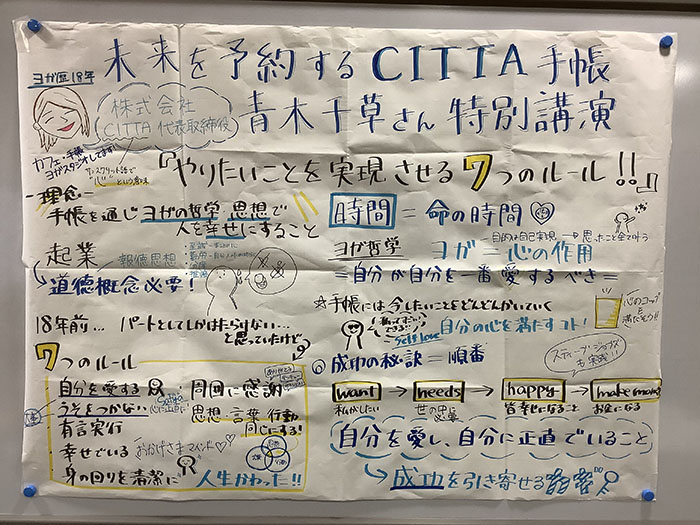 ヨガ歴18年
未来を予約するCITTA手帳
株式会社
CITTA 代表取締役
青木千草さん 特別講演
カフェ・手帳
ヨガスタジオしてます!
サンスクリット語で
"心"という意味
『やりたいことを実現させる7つのルール!!』
理念=
手帳を通じヨガの哲学・思想で
人を幸せにすること
時間=命の時間
目的は自己実現→思ったこと全て叶う
起業
報徳思想
道徳概念必要!
ヨガ哲学
ヨガ=心の作用
=自分が自分を一番愛するべき=
☆手帳には今したいことをどんどんかいていく
Self love
自分の心を満たすコト!
心のコップ
を
満たそう!!
18年前... パートとしてしかはたらけない...
と思ってたけど
7つのルール
自分を愛する
周囲に感謝
ありがとう
うそをつかない
思想・言葉・行動
同じにする!
有言実行
幸せでいる
おかげさまマインド♡♡
身の回りを清潔に
人生かわった!!
◎成功の秘訣=順番
スティーブ・ジョブズ
も実践!!
want → needs → happy → make money
私がしたい
世の中に
必要
皆幸せになること
お金になる
自分を愛し、自分に正直でいること
成功を引き寄せる